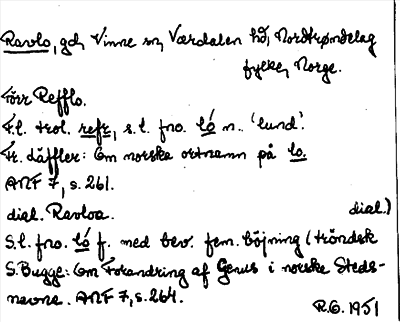 Ravlo, gd, Vinne sn, Værdalen hd, Nordtrøndelag
fylke, Norge.
Förr Refflo.
F.l. trol. refr, s.l. fno. ló n. ‘lund’.
Fr. Läffler: Om norske ortnamn på lo.
ANF 7, s. 261.
dial. Ravloa. dial.)
S.l. fno. ló f. med bev. fem. böjning (tröndsk
S. Bugge: Om Forandring af Genus i norske Steds-
navne. ANF 7, s. 264.
R.G. 1951